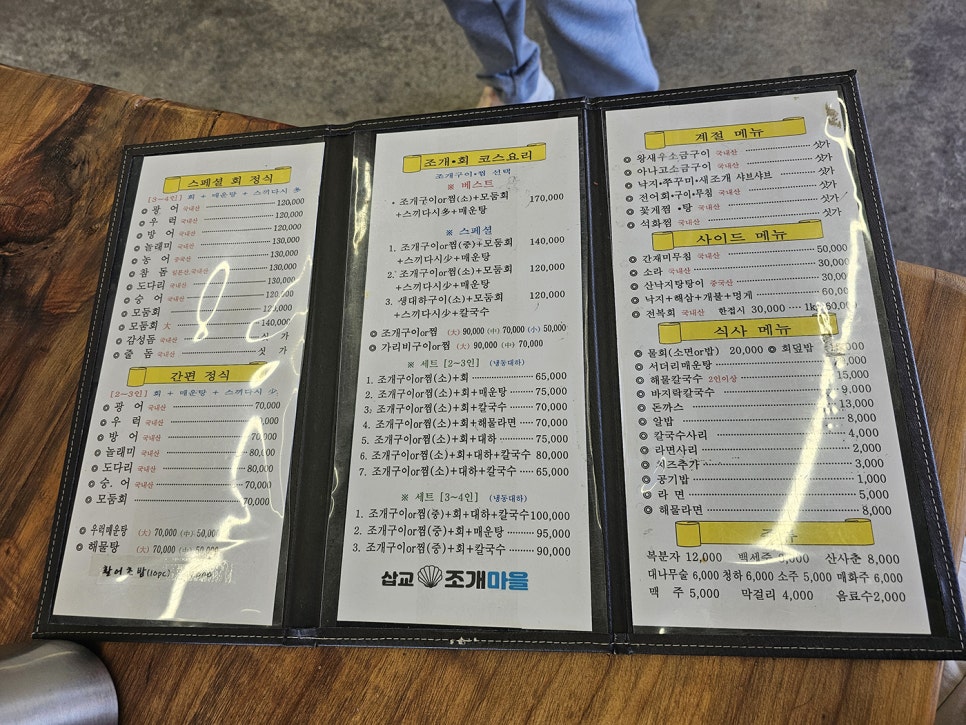 스페셜 회 정식
[3~4인] 회 + 매운탕 + 스끼다시 多
◎ 광 어 국내산 120,000
◎ 우 럭 국내산 120,000
◎ 방 어 국내산 120,000
◎ 놀래미 국내산 130,000
◎ 농 어 중국산 130,000
◎ 참 돔 일본산,국내산 130,000
◎ 도다리 국내산 130,000
◎ 숭 어 국내산 120,000
◎ 모둠회 120,000
◎ 모둠회 大 140,000
◎ 감성돔 국내산 싯 가
◎ 줄 돔 국내산 싯 가
간편 정식
[2~3인] 회 + 매운탕 + 스끼다시 少
◎ 광 어 국내산 70,000
◎ 우 럭 국내산
◎ 방 어 국내산 70,000
◎ 놀래미 국내산 80,000
◎ 도다리 국내산 80,000
◎ 숭어 국내산 70,000
◎ 모둠회 70,000
◎ 우럭매운탕 (大) 70,000 (中) 50,000
◎ 해물탕 (大) 70,000 (中) 50,000
활어초밥(10pc)
조개•회 코스요리
조개구이•찜 선택
※ 베스트
• 조개구이or찜(소)+모둠회 170,000
+스끼다시多+매운탕
※ 스페셜
1. 조개구이or찜(중)+모둠회 140,000
+스끼다시少+매운탕
2. 조개구이or찜(소)+모둠회 120,000
+스끼다시少+매운탕
3. 생대하구이(소)+모둠회 120,000
+스끼다시少+칼국수
◎ 조개구이or찜 (大) 90,000 (中) 70,000 (小) 50,000
◎ 가리비구이or찜 (大) 90,000 (中) 70,000
※ 세트 [2~3인] (냉동대하)
1. 조개구이or찜(소)+회 65,000
2. 조개구이or찜(소)+회+매운탕 75,000
3. 조개구이or찜(소)+회+칼국수 70,000
4. 조개구이or찜(소)+회+해물라면 70,000
5. 조개구이or찜(소)+회+대하 75,000
6. 조개구이or찜(소)+회+대하+칼국수 80,000
7. 조개구이or찜(소)+대하+칼국수 65,000
※ 세트 [3~4인] (냉동대하)
1. 조개구이or찜(중)+회+대하+칼국수 100,000
2. 조개구이or찜(중)+회+매운탕 95,000
3. 조개구이or찜(중)+회+칼국수 90,000
삽교 조개마을
계절 메뉴
◎ 왕새우소금구이 국내산 싯가
◎ 아나고소금구이 국내산 싯가
◎ 낙지•쭈꾸미•새조개 샤브샤브 싯가
◎ 전어회•구이•무침 국내산 싯가
◎ 꽃게찜 •탕 국내산 싯가
◎ 석화찜 국내산 싯가
사이드 메뉴
◎ 간재미무침 국내산 50,000
◎ 소라 국내산 30,000
◎ 산낙지탕탕이 중국산 30,000
◎ 낙지+해삼+개불+멍게 60,000
◎ 전복회 국내산 한접시 30,000 1kg 80,000
식사 메뉴
◎ 물회(소면or밥) 20,000 ◎ 회덮밥
◎ 서더리매운탕
◎ 해물칼국수 2인이상 15,000
◎ 바지락칼국수 9,000
◎ 돈까스 13,000
◎ 알밥 8,000
◎ 칼국수사리 4,000
◎ 라면사리 2,000
◎ 치즈추가 3,000
◎ 공기밥 1,000
◎ 라 면 5,000
◎ 해물라면 8,000
복분자 12,000 백세주 산사춘 8,000
대나무술 6,000 청하 6,000 소주 5,000 매화주 6,000
맥 주 5,000 막걸리 4,000 음료수2,000